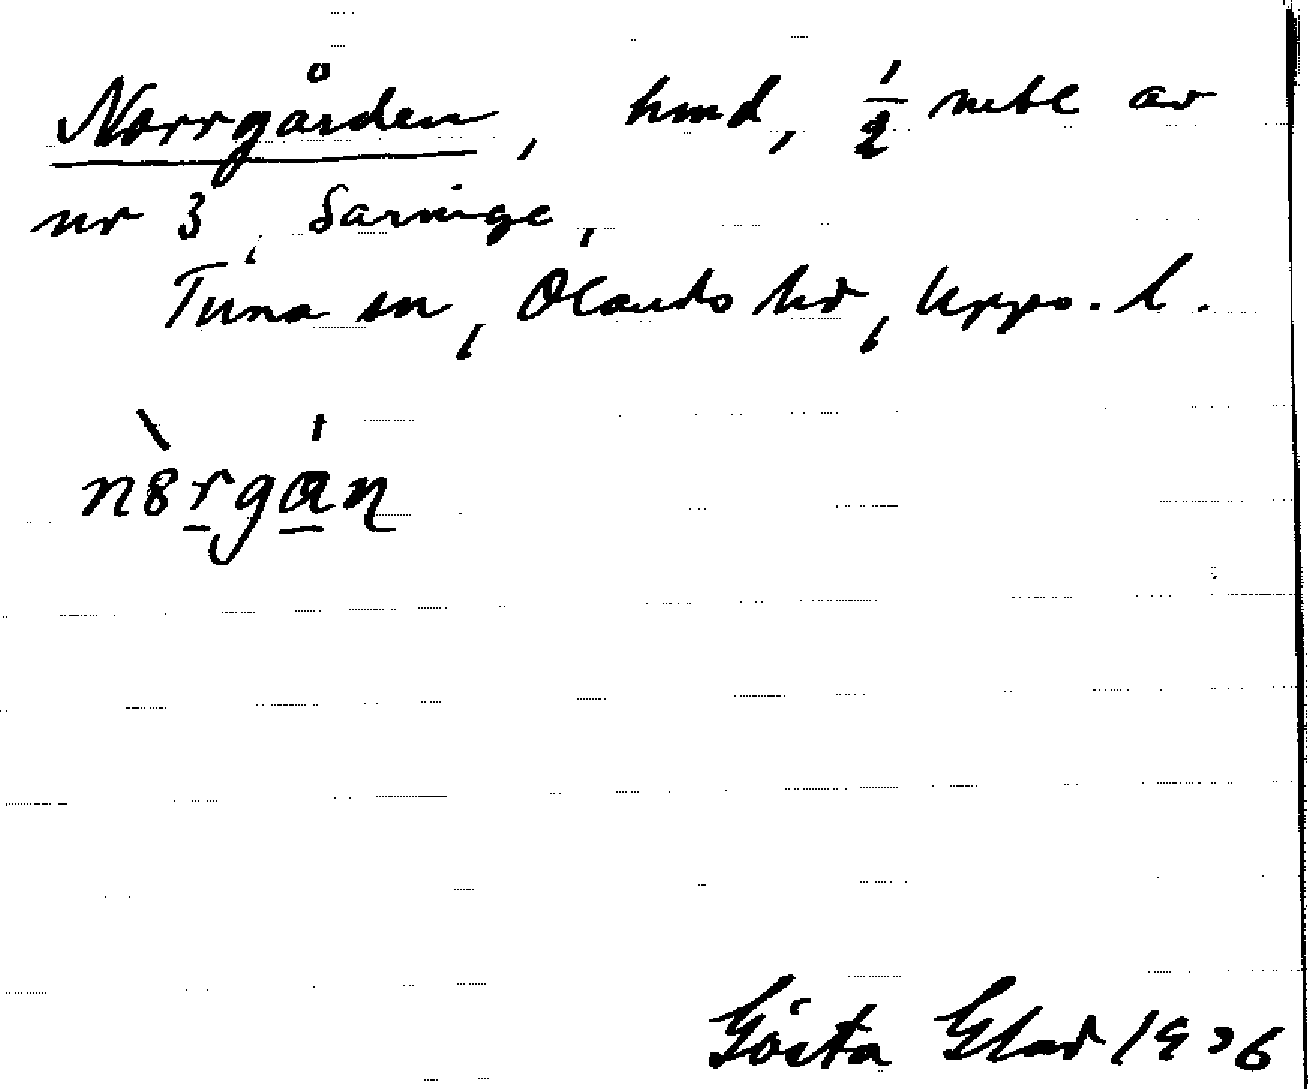 Norrgården, hmd, 1/2 mtl av
nr 3, Saringe,
Tuna sn, Ölands hd, Upps. l.
Gösta Elad 1936